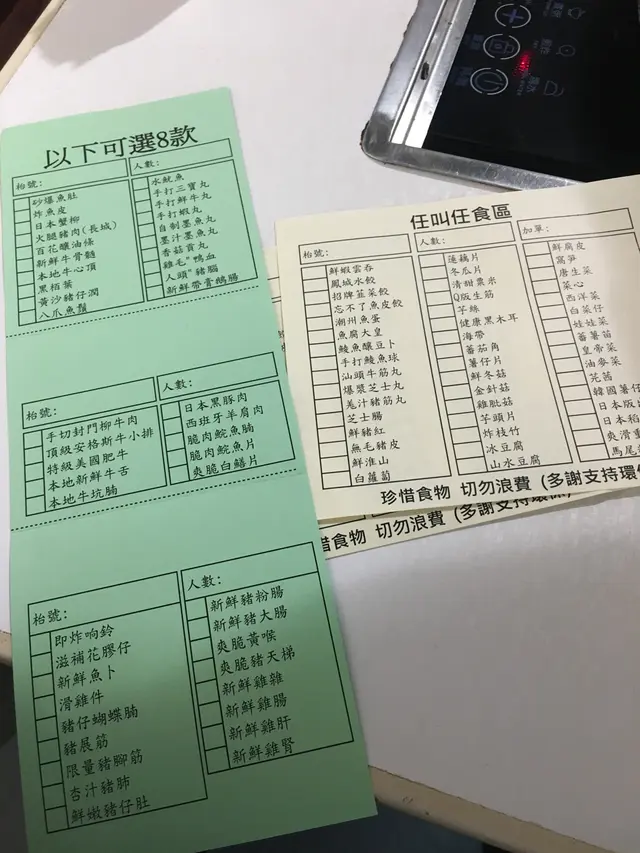 以下可選8款
枱號:
人數:
砂爆魚肚
炸魚皮
日本蟹柳
火腿豬肉(長城)
百花釀油條
新鮮牛骨髓
本地牛心頂
黑栢葉
黃沙豬仔潤
八爪魚鬚
水魷魚
手打三寶丸
手打鮮牛丸
手打蝦丸
自制墨魚丸
墨汁墨魚丸
香菇貢丸
雞毛"鴨血
人頭"豬腦
新鮮帶膏鵝腸
枱號:
人數:
手切封門柳牛肉
頂級安格斯牛小排
特級美國肥牛
本地新鮮牛舌
本地牛坑腩
日本黑豚肉
西班牙羊肩肉
脆肉鯇魚腩
脆肉鯇魚片
爽脆白鱔片
枱號:
人數:
即炸响鈴
滋補花膠仔
新鮮魚卜
滑雞件
豬仔蝴蝶腩
豬展筋
限量豬腳筋
杏汁豬肺
鮮嫩豬仔肚
新鮮豬粉腸
新鮮豬大腸
爽脆黃喉
爽脆豬天梯
新鮮雞雜
新鮮雞腸
新鮮雞肝
新鮮雞腎
任叫任食區
枱號:
人數:
加單:
鮮蝦雲吞
鳳城水餃
招牌韮菜餃
忘不了魚皮餃
潮州魚蛋
魚腐大皇
鯪魚釀豆卜
手打鯪魚球
汕頭牛筋丸
爆漿芝士丸
羗汁豬筋丸
芝士腸
鮮豬紅
無毛豬皮
鮮淮山
白蘿蔔
蓮藕片
冬瓜片
清甜粟米
Q版生筋
芋絲
健康黑木耳
海帶
蕃茄角
薯仔片
鮮冬菇
金針菇
雞肶菇
芋頭片
炸枝竹
冰豆腐
山水豆腐
鮮腐皮
窩笋
唐生菜
菜心
西洋菜
白菜仔
娃娃菜
蕃薯苗
皇帝菜
油麥菜
芫茜
韓國薯仔
日本版
日本稻
爽滑
馬尾
珍惜食物 切勿浪費 (多謝支持環
惜食物 切勿浪費 (多謝支持環保)